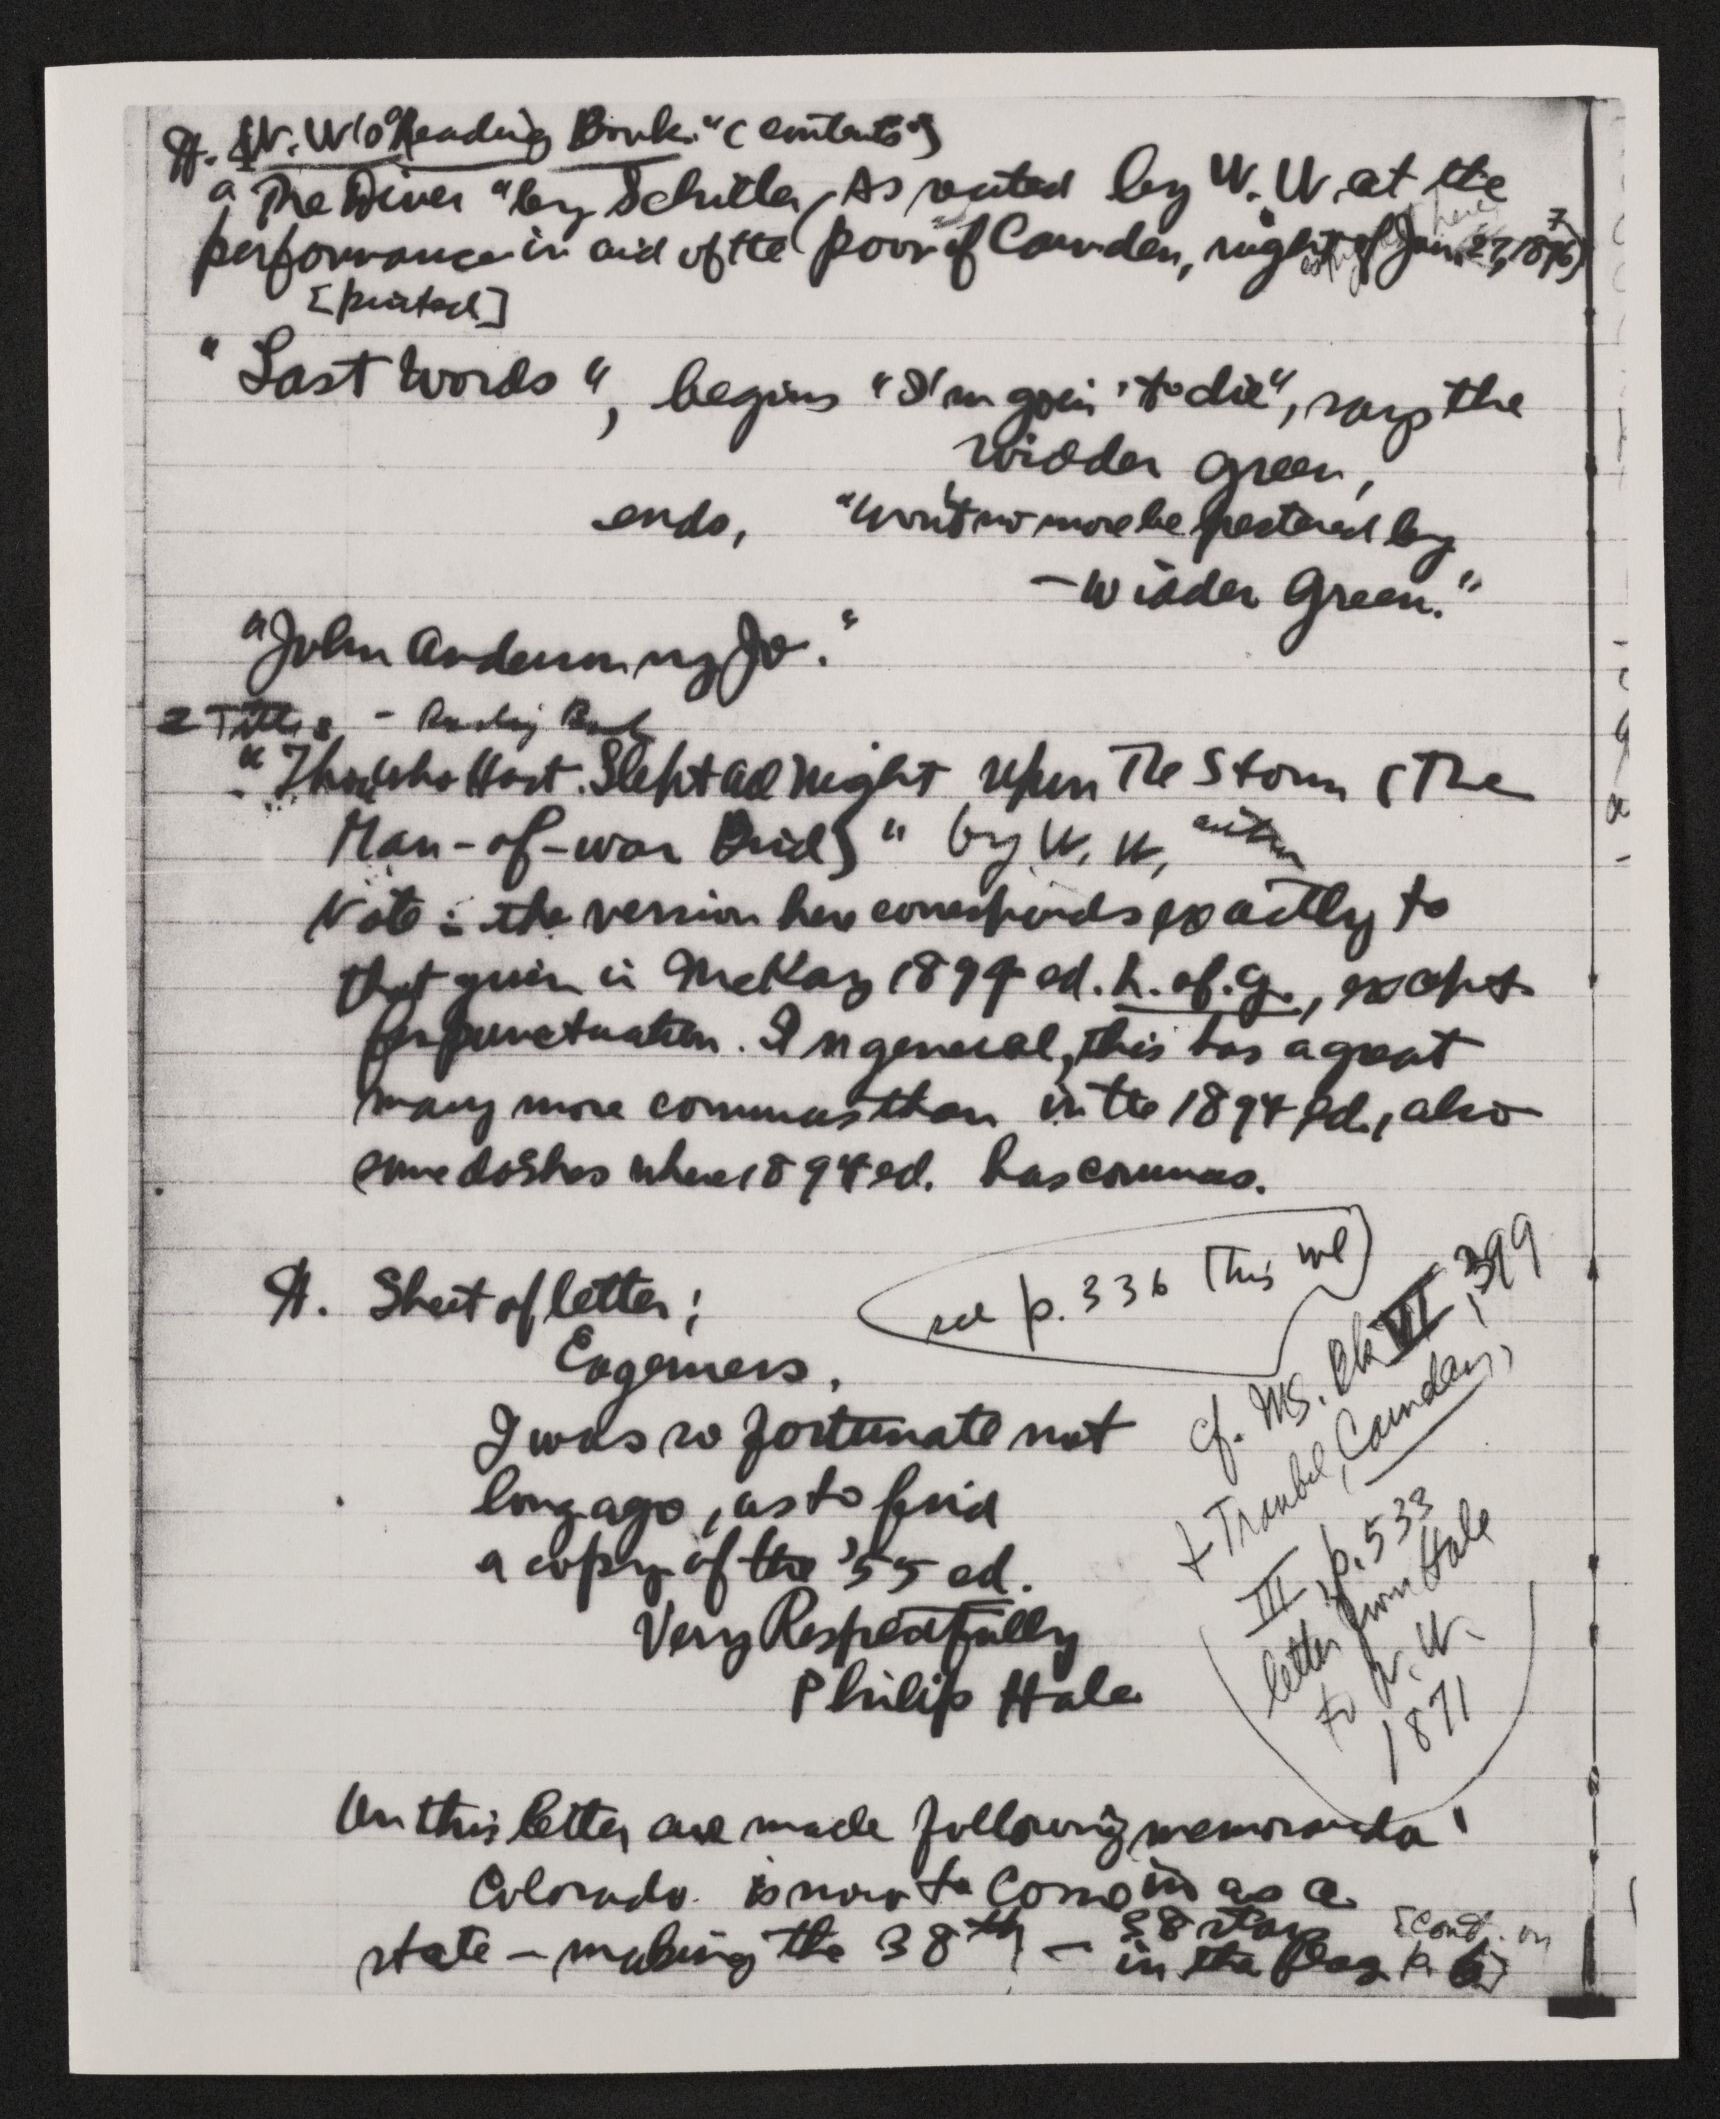 A. W.W's Reading Book." (contents)
"The Diver" by Schiller (As recited by W.W. at the
performance in aid of the poor of Camden, night of Jan. 27, 1876)
[printed]
"Last Words", begins "I'm goin' to die", says the
Widder Green,
ends, "Won't no more be pestered by
— Widder Green."
"John Anderson my Jo."
2 Titles - Reading Book
"Thou who Hast Slept all Night Upon The Storm (The
Man-of-war Bird)" by W. W,
Note: the version here corresponds exactly to
that given in McKay 1894 ed. L. of. G., except
for punctuation. In general, this has a great
many more commas than in the 1894 ed., also
some dashes where 1894 ed. has commas.
see p. 336 This vol
A. Sheet of letter;
Eagerness,
I was so fortunate not
long ago, as to find
a copy of the '55 ed.
Very Respectfully
Philip Hale
cf. MS. Bk VI, 399
+ Traubel, Camden,
III, p. 533
letter from Hale
to W. W.
1871
On this letter are made following memoranda
Colorado is now to come in as a
state — making the 38th — 38 stars
in the flag [cont. on
p. 6]